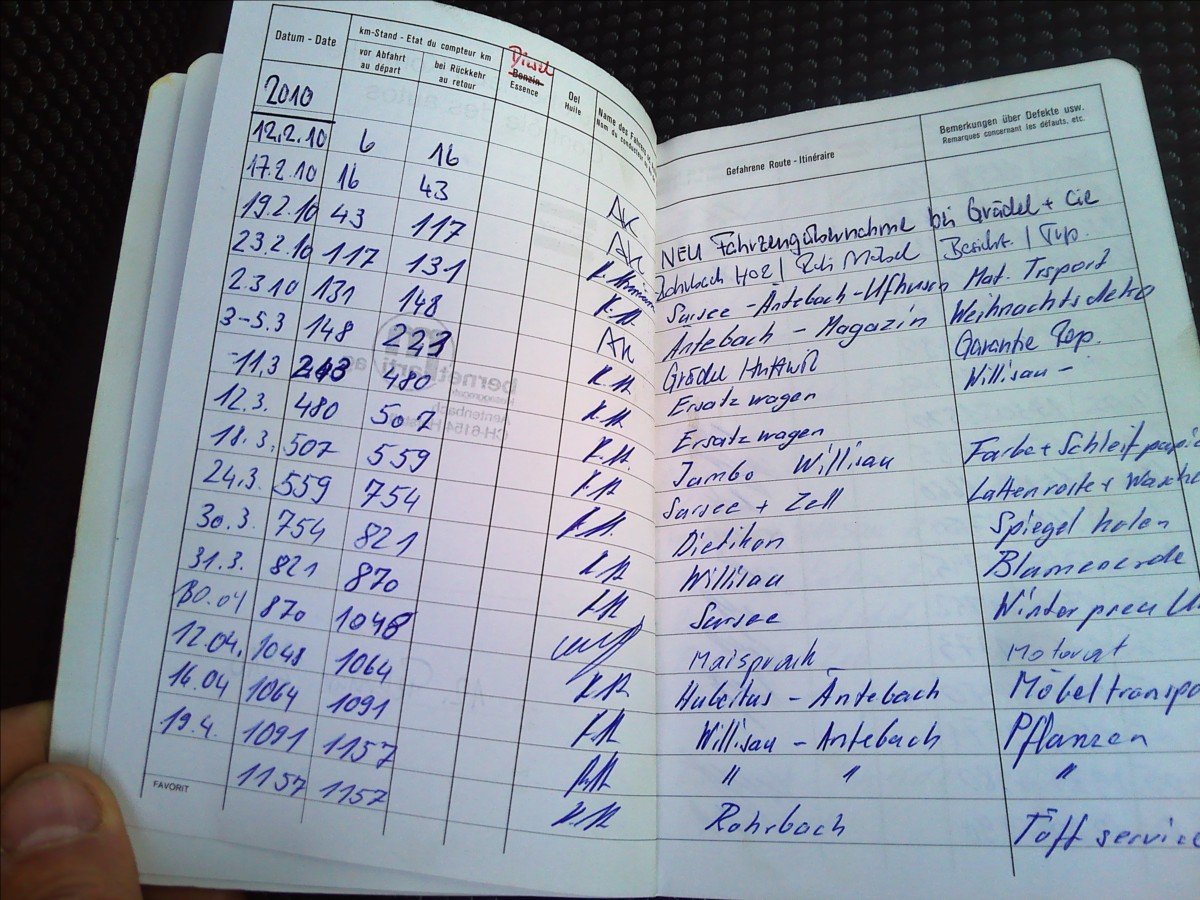 Datum - Date km-Stand - Etat du compteur km
vor Abfahrt au départ bei Rückkehr au retour
Diesel
Benzin Essence
Oel Huile
Name des Fahrers
Nom du conducteur
Gefahrene Route - Itinéraire
Bemerkungen über Defekte usw.
Remarques concernant les défauts, etc.
2010
12.2.10 6 16 AK NEU Fahrzeugübernahme bei Grädel + Cie
17.2.10 16 43 AK Rohrbach
19.2.10 43 117 Sursee - Äntebach - Ufhusen Mat. Trsport
23.2.10 117 131 Äntebach - Magazin Weihnachtsdeko
2.3.10 131 148 AK Grädel Huttwil Garantie Rep.
3-5.3 148 223 Ersatzwagen Willisau -
-11.3 243 480 Ersatzwagen
12.3. 480 507 Jumbo Willisau Farbe + Schleifpapi
18.3. 507 559 Sursee + Zell Lattenroste +
24.3. 559 754 Dietikon Spiegel holen
30.3. 754 821 Willisau Blumenerde
31.3. 821 870 Sursee
870 1048 Maisprach
12.04. 1048 1064 - Äntebach Möbeltranspo
16.04 1064 1091 Willisau - Äntebach Pflanzen
19.4. 1091 1157 " " "
1157 1157 Rohrbach Töff service
FAVORIT
bernet arti ag
CH-6154